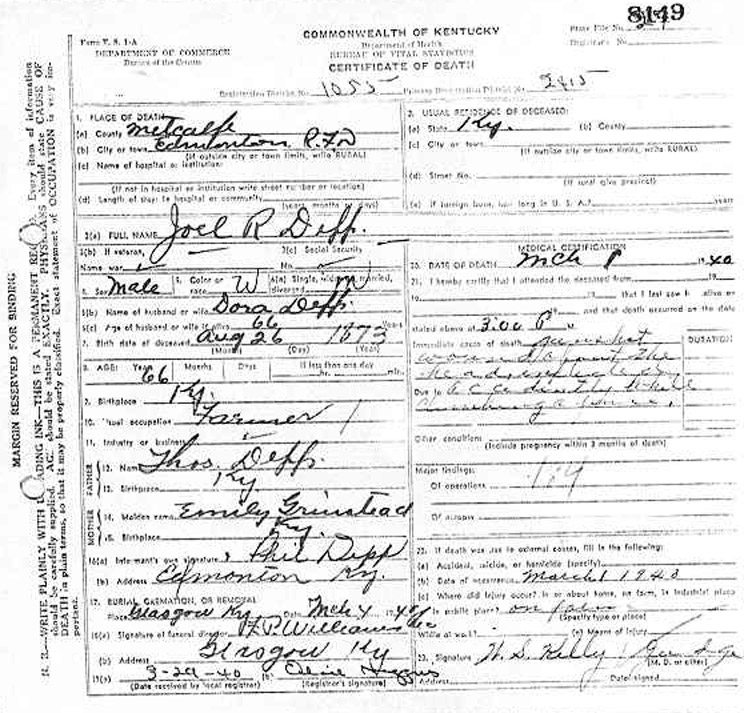 8149
Form V. S. 1-A
DEPARTMENT OF COMMERCE
Bureau of the Census
COMMONWEALTH OF KENTUCKY
Department of Health
BUREAU OF VITAL STATISTICS
CERTIFICATE OF DEATH
State File No.
Registrar's No.
Registration District No. 1055 Primary Registration District No. 2415
MARGIN RESERVED FOR BINDING
N. B.—WRITE PLAINLY WITH ADING INK—THIS IS A PERMANENT Every item of information
should be carefully supplied. AGE should be stated EXACTLY. PHYSICIANS should state CAUSE OF
DEATH in plain terms, so that it may be properly classified. Exact statement of OCCUPATION is very important.
1. PLACE OF DEATH
(a) County Metcalfe
(b) City or town Edmonton R.F.D
(If outside city or town limits, write RURAL)
(c) Name of hospital or institution:
(If not in hospital or institution write street number or location)
(d) Length of stay: In hospital or community
(years, months or days)
2. USUAL RESIDENCE OF DECEASED:
(a) State Ky. (b) County
(c) City or town
(If outside city or town limits, write RURAL)
(d) Street No.
(If rural give precinct)
(e) If foreign born, how long in U. S. A.? years
3(a) FULL NAME Joel R Depp.
3(b) If veteran, 3(c) Social Security
Name war No.
5. Sex Male 5. Color or race W 6(a) Single, widowed, married, divorced M
6(b) Name of husband or wife Dora Depp.
6(c) Age of husband or wife if alive 66 Years
7. Birth date of deceased Aug 26 1873
(Month) (Day) (Year)
8. AGE: Years 66 Months Days If less than one day
hr. min.
9. Birthplace Ky.
10. Usual occupation Farmer
11. Industry or business
FATHER
12. Name Thos. Depp.
13. Birthplace Ky
MOTHER
14. Maiden name Emily Grinstead
15. Birthplace Ky.
16(a) Informant's own signature Phil Depp
(b) Address Edmonton Ky.
17. BURIAL, CREMATION, OR REMOVAL
Place Glasgow Ky Date Mch 4 1940
18(a) Signature of funeral director H.P. Williams
(b) Address Glasgow Ky
19(a) 3-29-40 (b)
(Date received by local registrar) (Registrar's signature)
MEDICAL CERTIFICATION
20. DATE OF DEATH Mch 1 1940
21. I hereby certify that I attended the deceased from to
to that I last saw h alive on
and that death occurred on the date
stated above at 3:00 P m
Immediate cause of death gunshot
wound
the head
Due to accidently while
DURATION
Other conditions
(Include pregnancy within 3 months of death)
Major findings:
Of operations
Of autopsy
22. If death was due to external causes, fill in the following:
(a) Accident, suicide, or homicide (specify)
(b) Date of occurrence March 1 1940
(c) Where did injury occur? In or about home, on farm, in industrial place
in public place? on farm
(Specify type of place)
While at work? (e) Means of injury
23. Signature W. S. Kelly
(M. D. or other)
Address Date signed